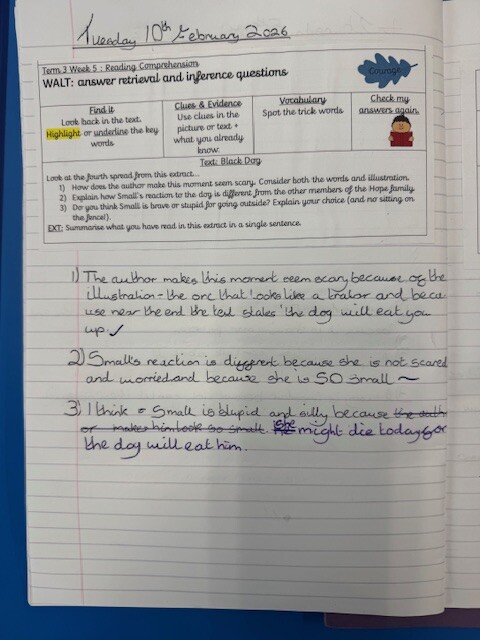 Tuesday 10th February 2026
Term 3 Week 5 : Reading Comprehension
WALT: answer retrieval and inference questions
Courage
Find it
Look back in the text.
Highlight or underline the key
words
Clues & Evidence
Use clues in the
picture or text +
what you already
know.
Vocabulary
Spot the trick words
Check my
answers again.
Text: Black Dog
Look at the fourth spread from this extract...
1) How does the author make this moment seem scary. Consider both the words and illustration.
2) Explain how Small's reaction to the dog is different from the other members of the Hope family.
3) Do you think Small is brave or stupid for going outside? Explain your choice (and no sitting on
the fence!).
EXT: Summarise what you have read in this extract in a single sentence.
1) The author makes this moment seem scary because of the
illustration - the orc that looks like a and beca
use near the end the text states 'the dog will eat you
up. ✓
2) Small's reaction is different because she is not scared
and worried and because she is SO small ~
3) I think Small is stupid and silly because the auth
or makes him look so small. she might die today or
the dog will eat him.